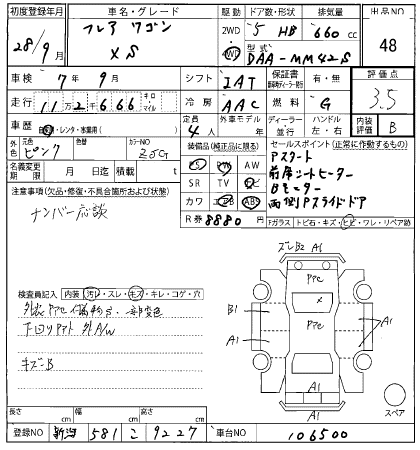 初度登録年月 車名・グレード 駆動 ドア数・形状 排気量 出品NO
28/9月 フレア ワゴン XS 2WD 4WD 5 HB 660cc 48
型式 DAA-MM42S
車検 7年 9月 シフト IAT 保証書 有・無 評価点
走行 11万2千666 キロ マイル 冷房 AAC 燃料 G 3.5
車歴 自家・レンタ・業務用( ) 定員 4人 外車モデル 年 ディーラー 並行 ハンドル 左・右 内装評価 B
外色 元色 ピンク 色替 カラーNO Z5G 装備品(純正品に限る) セールスポイント(正常に作動するもの)
名義変更期限 月 日迄 積載量 t PS PW AW Pスタート
注意事項(欠品・修復・不具合箇所および状態) SR TV ナビ 前席シートヒーター
ナンバー応談 カワ エアB ABS Bモニター
R券 8880 両側Pスライドドア
Fガラス トビ石・キズ・ヒビ・ワレ・リペア跡
ズレB2 A1
検査員記入 内装 汚レ・スレ・キズ・キレ・コゲ・穴
PAC
×
PAC
B1
A1
A1
A1
下回りサビト 外A/W
キズ-B
A1
A1
スペア
長さ cm 幅 cm 高さ cm
登録NO 新潟 581 こ 9227 車台NO 106500